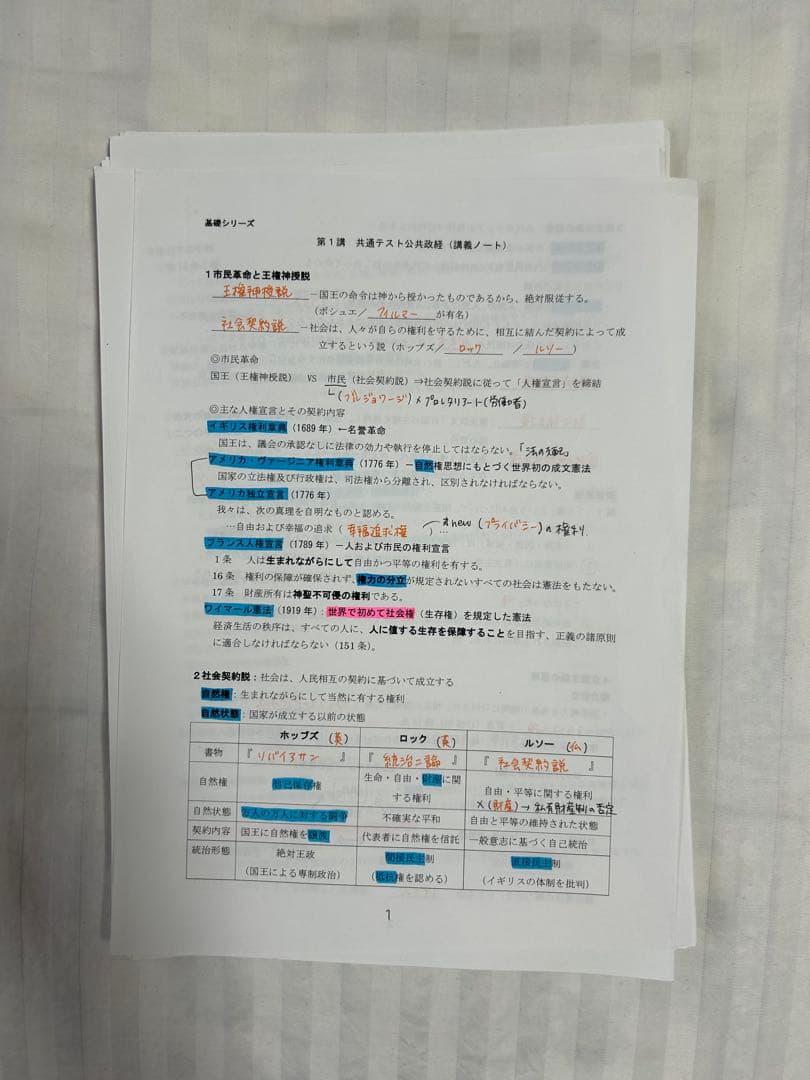 基礎シリーズ
第1講 共通テスト公共政経（講義ノート）
1市民革命と王権神授説
王権神授説 －国王の命令は神から授かったものであるから、絶対服従する。
（ボシュエ／フィルマー が有名）
社会契約説 －社会は、人々が自らの権利を守るために、相互に結んだ契約によって成
立するという説（ホッブズ／ロック ／ルソー）
◎市民革命
国王（王権神授説） VS 市民（社会契約説）⇒社会契約説に従って「人権宣言」を締結
(ブルジョワージ) × プロレタリアート(労働者)
◎主な人権宣言とその契約内容
イギリス権利章典（1689年）←名誉革命
国王は、議会の承認なしに法律の効力や執行を停止してはならない。「法の支配」
アメリカ・ヴァージニア権利章典（1776年）－自然権思想にもとづく世界初の成文憲法
国家の立法権及び行政権は、司法権から分離され、区別されなければならない。
アメリカ独立宣言（1776年）
我々は、次の真理を自明なものと認める。
…自由および幸福の追求（幸福追求権 new (プライバシー)の権利
フランス人権宣言（1789年）－人および市民の権利宣言
1条 人は生まれながらにして自由かつ平等の権利を有する。
16条 権利の保障が確保されず、権力の分立が規定されないすべての社会は憲法をもたない。
17条 財産所有は神聖不可侵の権利である。
ワイマール憲法（1919年）：世界で初めて社会権（生存権）を規定した憲法
経済生活の秩序は、すべての人に、人に値する生存を保障することを目指す、正義の諸原則
に適合しなければならない（151条）。
2社会契約説：社会は、人民相互の契約に基づいて成立する
自然権：生まれながらにして当然に有する権利
自然状態：国家が成立する以前の状態
ホッブズ (英) ロック (英) ルソー (仏)
書物 『リバイアサン』 『統治二論』 『社会契約説』
自然権 自己保存権 生命・自由・財産に関する権利 自由・平等に関する権利
×(財産)→私有財産制の否定
自然状態 万人の万人に対する闘争 不確実な平和 自由と平等の維持された状態
契約内容 国王に自然権を譲渡 代表者に自然権を信託 一般意志に基づく自己統治
統治形態 絶対王政 間接民主制 直接民主制
（国王による専制政治） （抵抗権を認める） （イギリスの体制を批判）
1